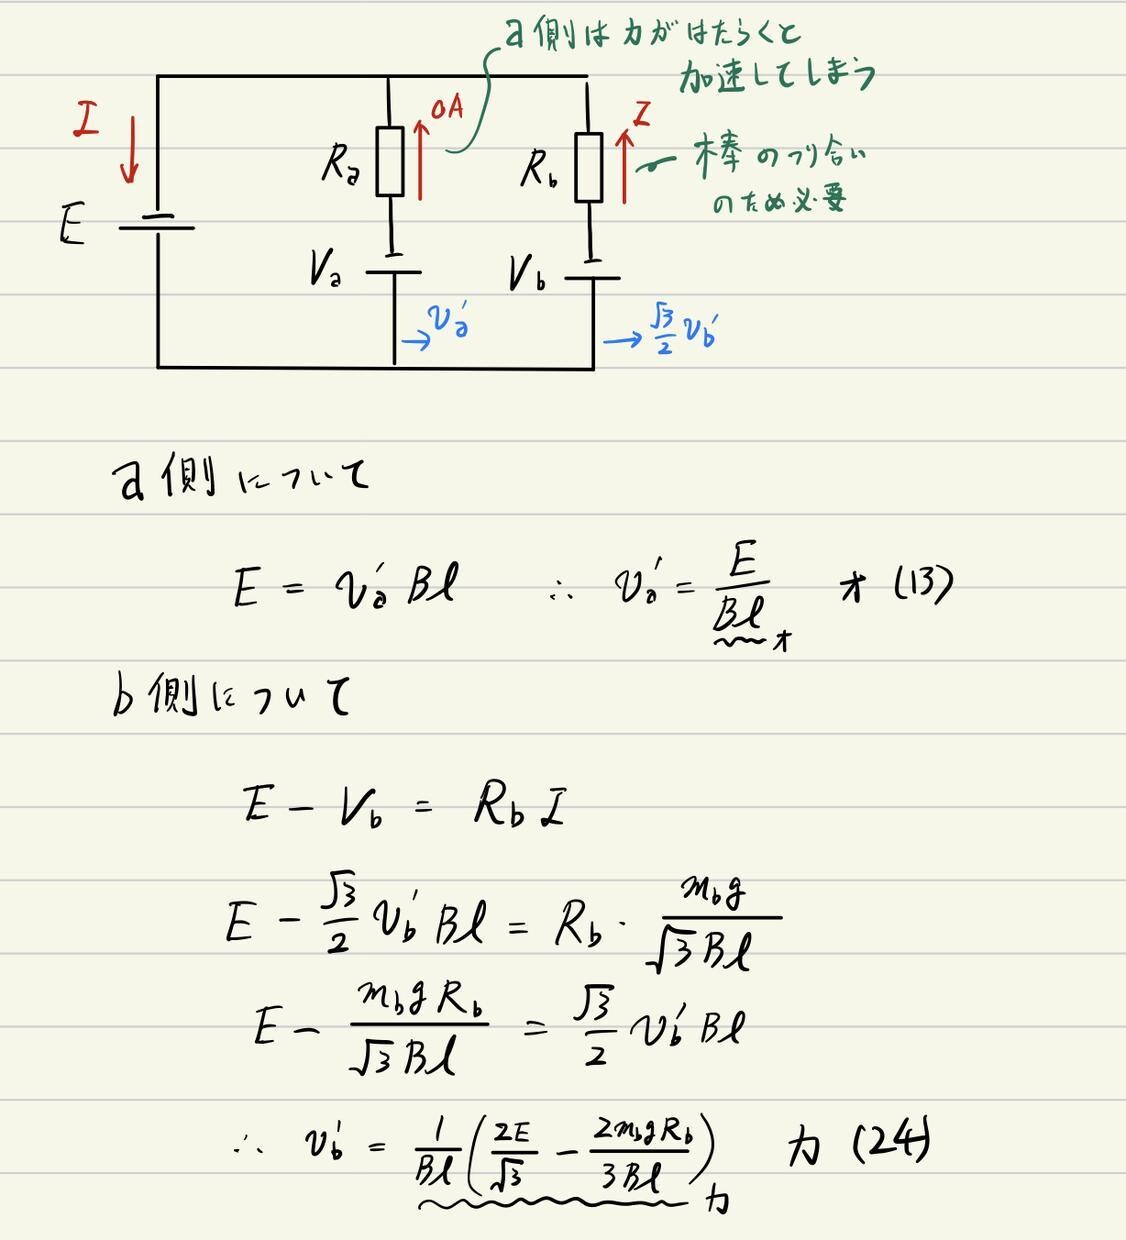 a側は力がはたらくと
加速してしまう
I
0A
I
Ra
Rb
棒のつり合い
のため必要
E
Va
Vb
→va′
→√3/2 vb′
a側について
E = va′Bl ∴ va′ = E/Bl オ (13)
オ
b側について
E − Vb = RbI
E − √3/2 vb′Bl = Rb・mbg/√3Bl
E − mbgRb/√3Bl = √3/2 vb′Bl
∴ vb′ = 1/Bl(2E/√3 − 2mbgRb/3Bl) カ (24)
カ